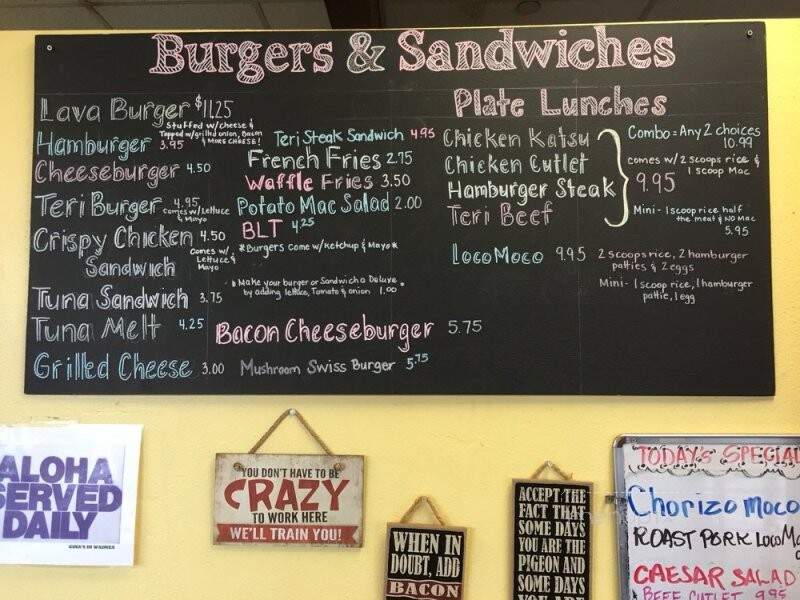 Burgers & Sandwiches
Lava Burger $11.25
Stuffed w/cheese &
Topped w/grilled onion, Bacon
& MORE CHEESE!
Hamburger 3.95
Cheeseburger 4.50
Teri Burger 4.95
comes w/Lettuce
& Mayo
Crispy Chicken 4.50
Sandwich
comes w/
Lettuce &
Mayo
Tuna Sandwich 3.75
Tuna Melt 4.25
Grilled Cheese 3.00
Teri Steak Sandwich 4.95
French Fries 2.75
Waffle Fries 3.50
Potato Mac Salad 2.00
BLT 4.25
*Burgers come w/ketchup & Mayo*
* Make your burger or Sandwich a Deluxe
by adding lettuce, Tomato & onion 1.00 *
Bacon Cheeseburger 5.75
Mushroom Swiss Burger 5.75
Plate Lunches
Chicken Katsu
Chicken Cutlet
Hamburger Steak
Teri Beef
Combo = Any 2 choices
10.99
comes w/ 2 scoops rice &
1 scoop Mac
9.95
Mini - 1 scoop rice half
the meat & NO Mac
5.95
LocoMoco 9.95
2 scoops rice, 2 hamburger
patties & 2 eggs
Mini - 1 scoop rice, 1 hamburger
pattie, 1 egg
ALOHA
SERVED
DAILY
YOU DON'T HAVE TO BE
CRAZY
TO WORK HERE
WE'LL TRAIN YOU!
WHEN IN
DOUBT, ADD
BACON
ACCEPT THE
FACT THAT
SOME DAYS
YOU ARE THE
PIGEON AND
SOME DAYS
YOU ARE
TODAY'S SPECIAL
Chorizo Moco
ROAST PORK LOCO Mo
CAESAR SALAD
BEEF CUTLET 9.95